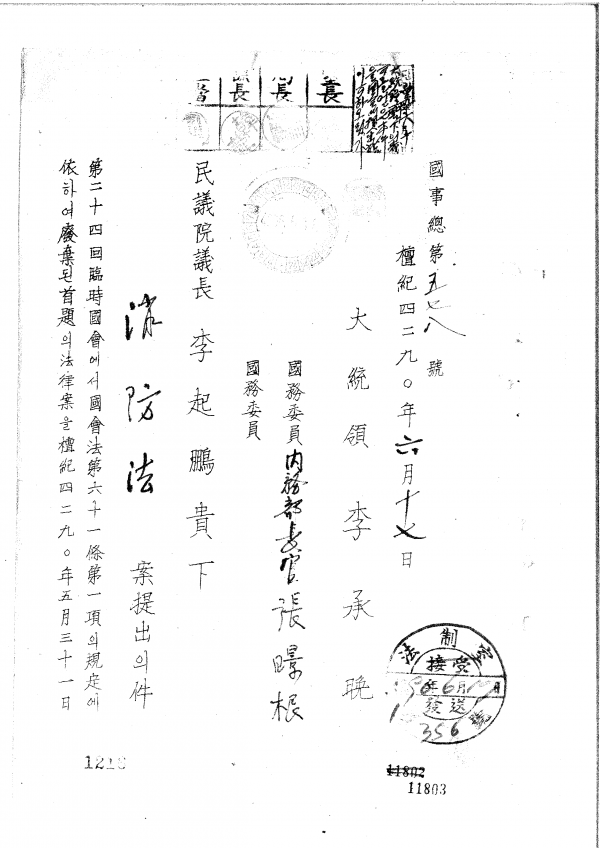 國事總第五七八號
檀紀四二九〇年六月十七日
大統領 李承晩
國務委員 內務部長官 張暻根
國務委員
民議院議長 李起鵬 貴下
消防法案提出의件
第二十四回臨時國會에서國會法第六十一條第一項의規定에
依하여廢棄된首題의法律案을檀紀四二九〇年五月三十一日
長 長 長
法制室
接受
年6月17日
發送
356號
11802
11803